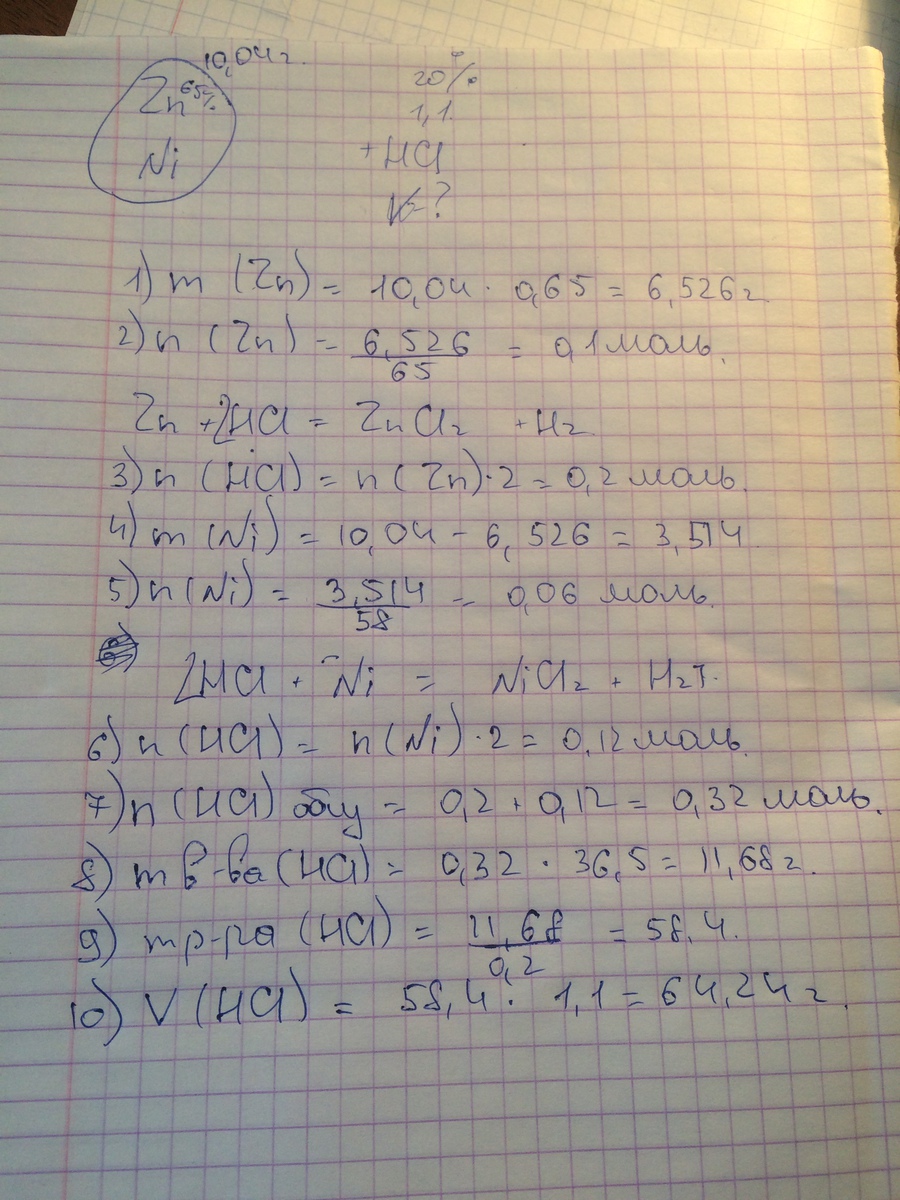 10,04 г.
Zn 65% 20%
Ni 1,1.
+ HCl
V-?
1) m (Zn) = 10,04 · 0,65 = 6,526 г
2) n (Zn) = 6,526/65 = 0,1 моль.
Zn + 2HCl = ZnCl₂ + H₂
3) n (HCl) = n(Zn)·2 = 0,2 моль.
4) m (Ni) = 10,04 - 6,526 = 3,514.
5) n(Ni) = 3,514/58 = 0,06 моль.
2HCl + Ni = NiCl₂ + H₂↑.
6) n(HCl) = n(Ni)·2 = 0,12 моль.
7) n(HCl) общ = 0,2 + 0,12 = 0,32 моль.
8) m в-ва (HCl) = 0,32 · 36,5 = 11,68 г.
9) m р-ра (HCl) = 11,68/0,2 = 58,4.
10) V (HCl) = 58,4 · 1,1 = 64,24 г.